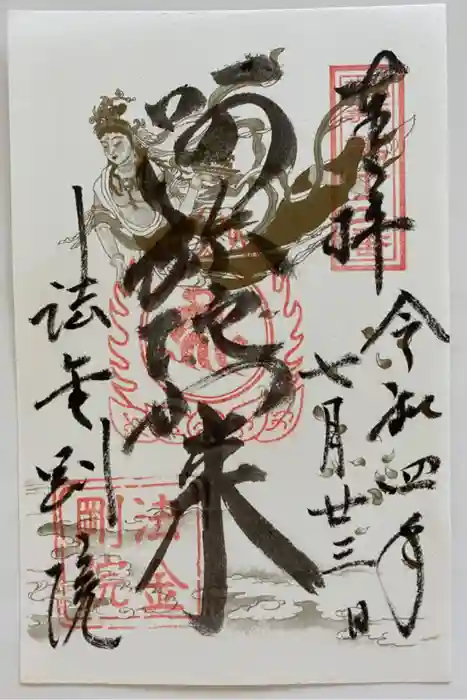 奉拝
令和四年
七月廿三日
阿弥陀如来
法金剛院
法金
剛院